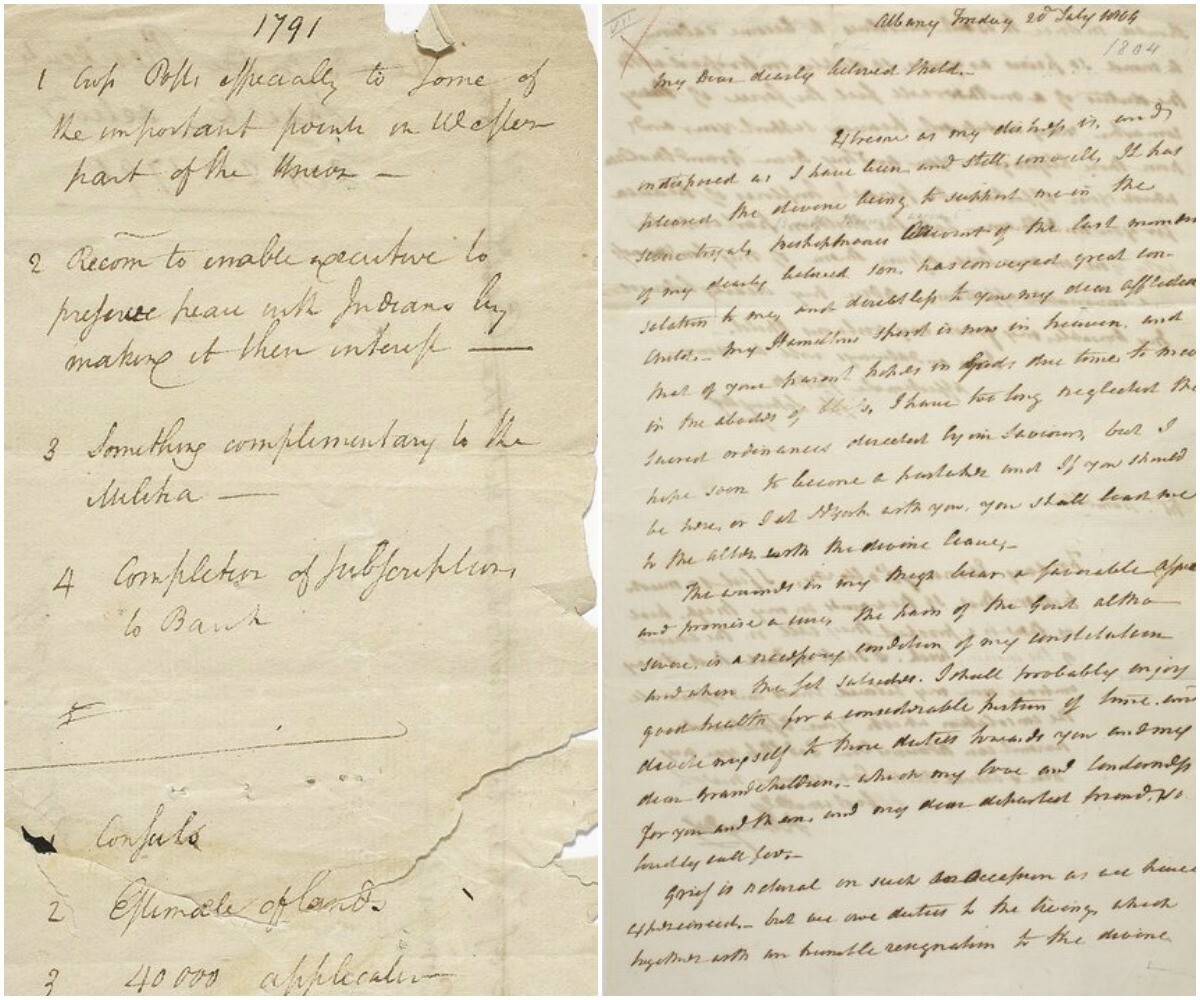 1791
1 Cross Posts especially to some of
the important points in Western
part of the Union —
2 Recom to enable executive to
preserve peace with Indians by
making it their interest —
3 Something complimentary to the
Militia —
4 Completion of subscriptions
to Bank
1 Consuls
2 Estimate of lands
3 40 000 application
Albany Friday 20d July 1804
1804
My Dear dearly beloved Child.
Extreme as my distress is, and
indisposed as I have been and still unwell, It has
pleased the divine being to support me in the
severe tryal, Bishop Moores Account of the last moments
of my dearly beloved son, has conveyed great con-
solation to me, and doubtless to you my dear afflicted
Child. My Hamiltons spirit is now in heaven, and
that of your parent hopes in Gods due time to meet
in the abodes of bliss, I have too long neglected the
sacred ordinances directed by our Saviour, but I
hope soon to become a partaker and If you should
be here, or I at NYork with you, you shall lead me
to the alter with the divine leave,
The wounds in my thigh bear a favorable
and promise a cure, the pain of the Gout altho
severe, is a necessary condition of my constitution
and when the fit subsides. I shall probably enjoy
good health for a considerable portion of time, and
devote myself to those duties towards you and my
dear Grandchildren, which my love and tenderness
for you and them, and my dear departed friend, so
loudly call for.
Grief is natural on such an Occasion as we have
experienced, but we owe duties to the living, which
together with an humble resignation to the divine